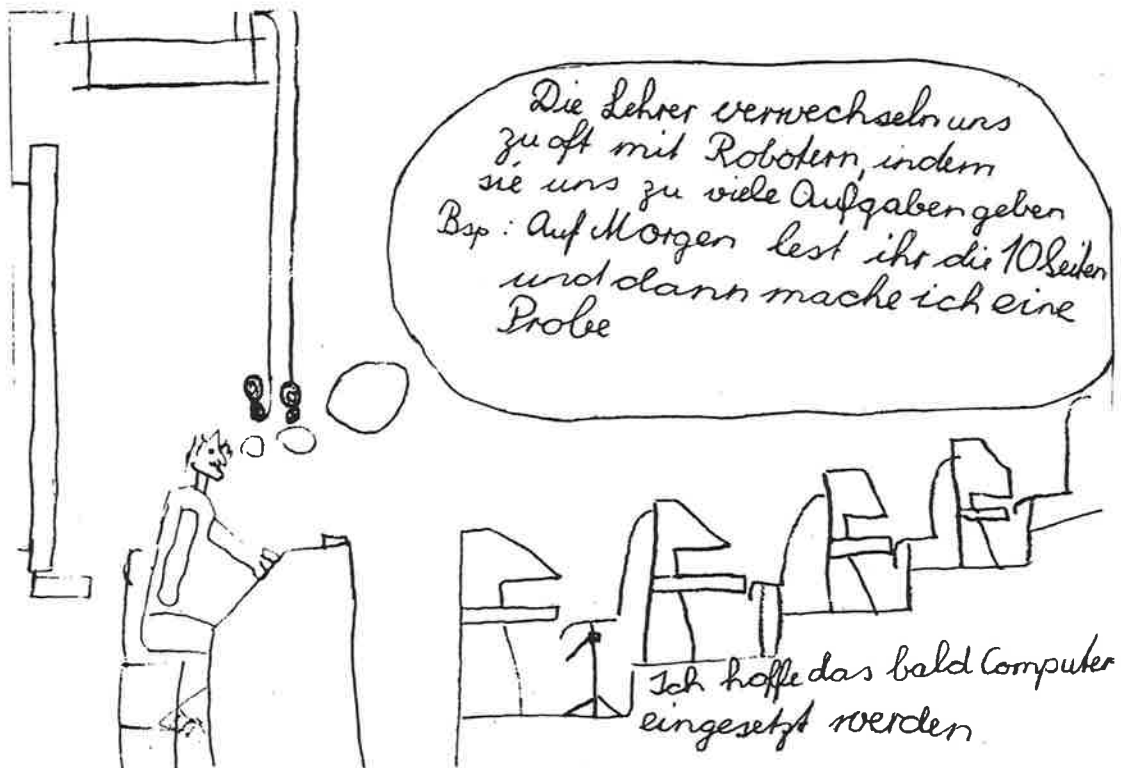 Die Lehrer verwechseln uns
zu oft mit Robotern, indem
sie uns zu viele Aufgaben geben
Bsp: Auf Morgen lest ihr die 10 Seiten
und dann mache ich eine
Probe
Ich hoffe das bald Computer
eingesetzt werden